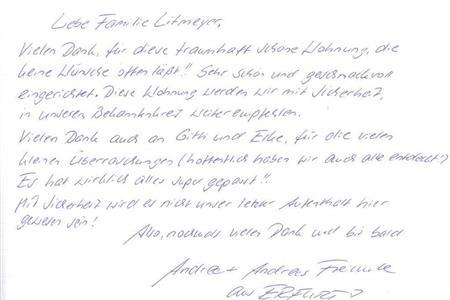 Liebe Familie Litmeyer,
Vielen Dank, für diese traumhaft schöne Wohnung, die
keine Wünsche offen läßt!! Sehr schön und geschmackvoll
eingerichtet. Diese Wohnung werden wir mit Sicherheit,
in unseren Bekanntenkreis weiterempfehlen.
Vielen Dank auch an Gitti und Eike, für die vielen
kleinen Überraschungen (hoffentlich haben wir auch alle entdeckt?)
Es hat wirklich alles super gepasst!!
Mit Sicherheit wird es nicht unser letzter Aufenthalt hier
gewesen sein!
Also, nochmals vielen Dank und bis bald
Andrea + Andreas
aus ERFURT